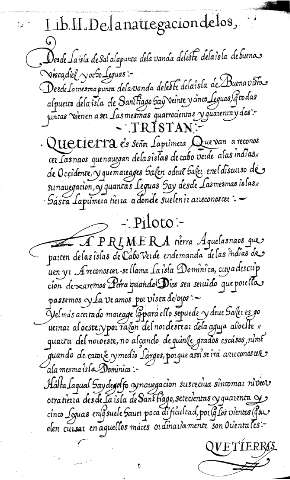 Lib. II. De la navegacion de los,
Desde la isla de Sal a la punta de la vanda del este de la isla de buena
Vista diez y ocho leguas:
Desde la mesma punta de la vanda del este de la isla de Buena vista
al puerto de la isla de Santiago hay veinte y cinco leguas, q̃ todas
juntas vienen a ser las mesmas quatrocientas y quarenta y dos:
TRISTAN
Que tierra es Señor la primera Que van a reconos
cer las naos que navegan de las islas de cabo verde a las indias
de Occidente, y que navegaz hazen en el discurso de
su navegacion, y quantas leguas hay desde las mesmas islas
hasta la primera tierra a donde suelen ir a reconoscer:
Piloto
LA PRIMERA tierra A que las naos que
parten de las islas de Cabo Verde en demanda de las indias de
ven yr A reconoscer se llama la isla Dominica, cuya descrip
cion dexaremos Para quando Dios sea servido que por ella
passemos y la veamos por vista de ojos:
Y el mas acertado para ello se puede y deve hazer es go
vernar al oeste, y por razon del nordestear de la aguja al oeste
quarta del noroeste, no alçando de quinze grados escasos, ni min
guando de catorze y medio largos, porque assi se irá a reconoscer
a la mesma isla Dominica:
Hasta la qual hay de golfo y navegacion sin ver
otra tierra desde la isla de Santiago, setecientas y quarenta y
cinco leguas en que suele haver poca dificultad, por q̃ los vientos q̃ su
elen cursar en aquellos mares ordinariamente son Orientales:
QUE TIERRAS